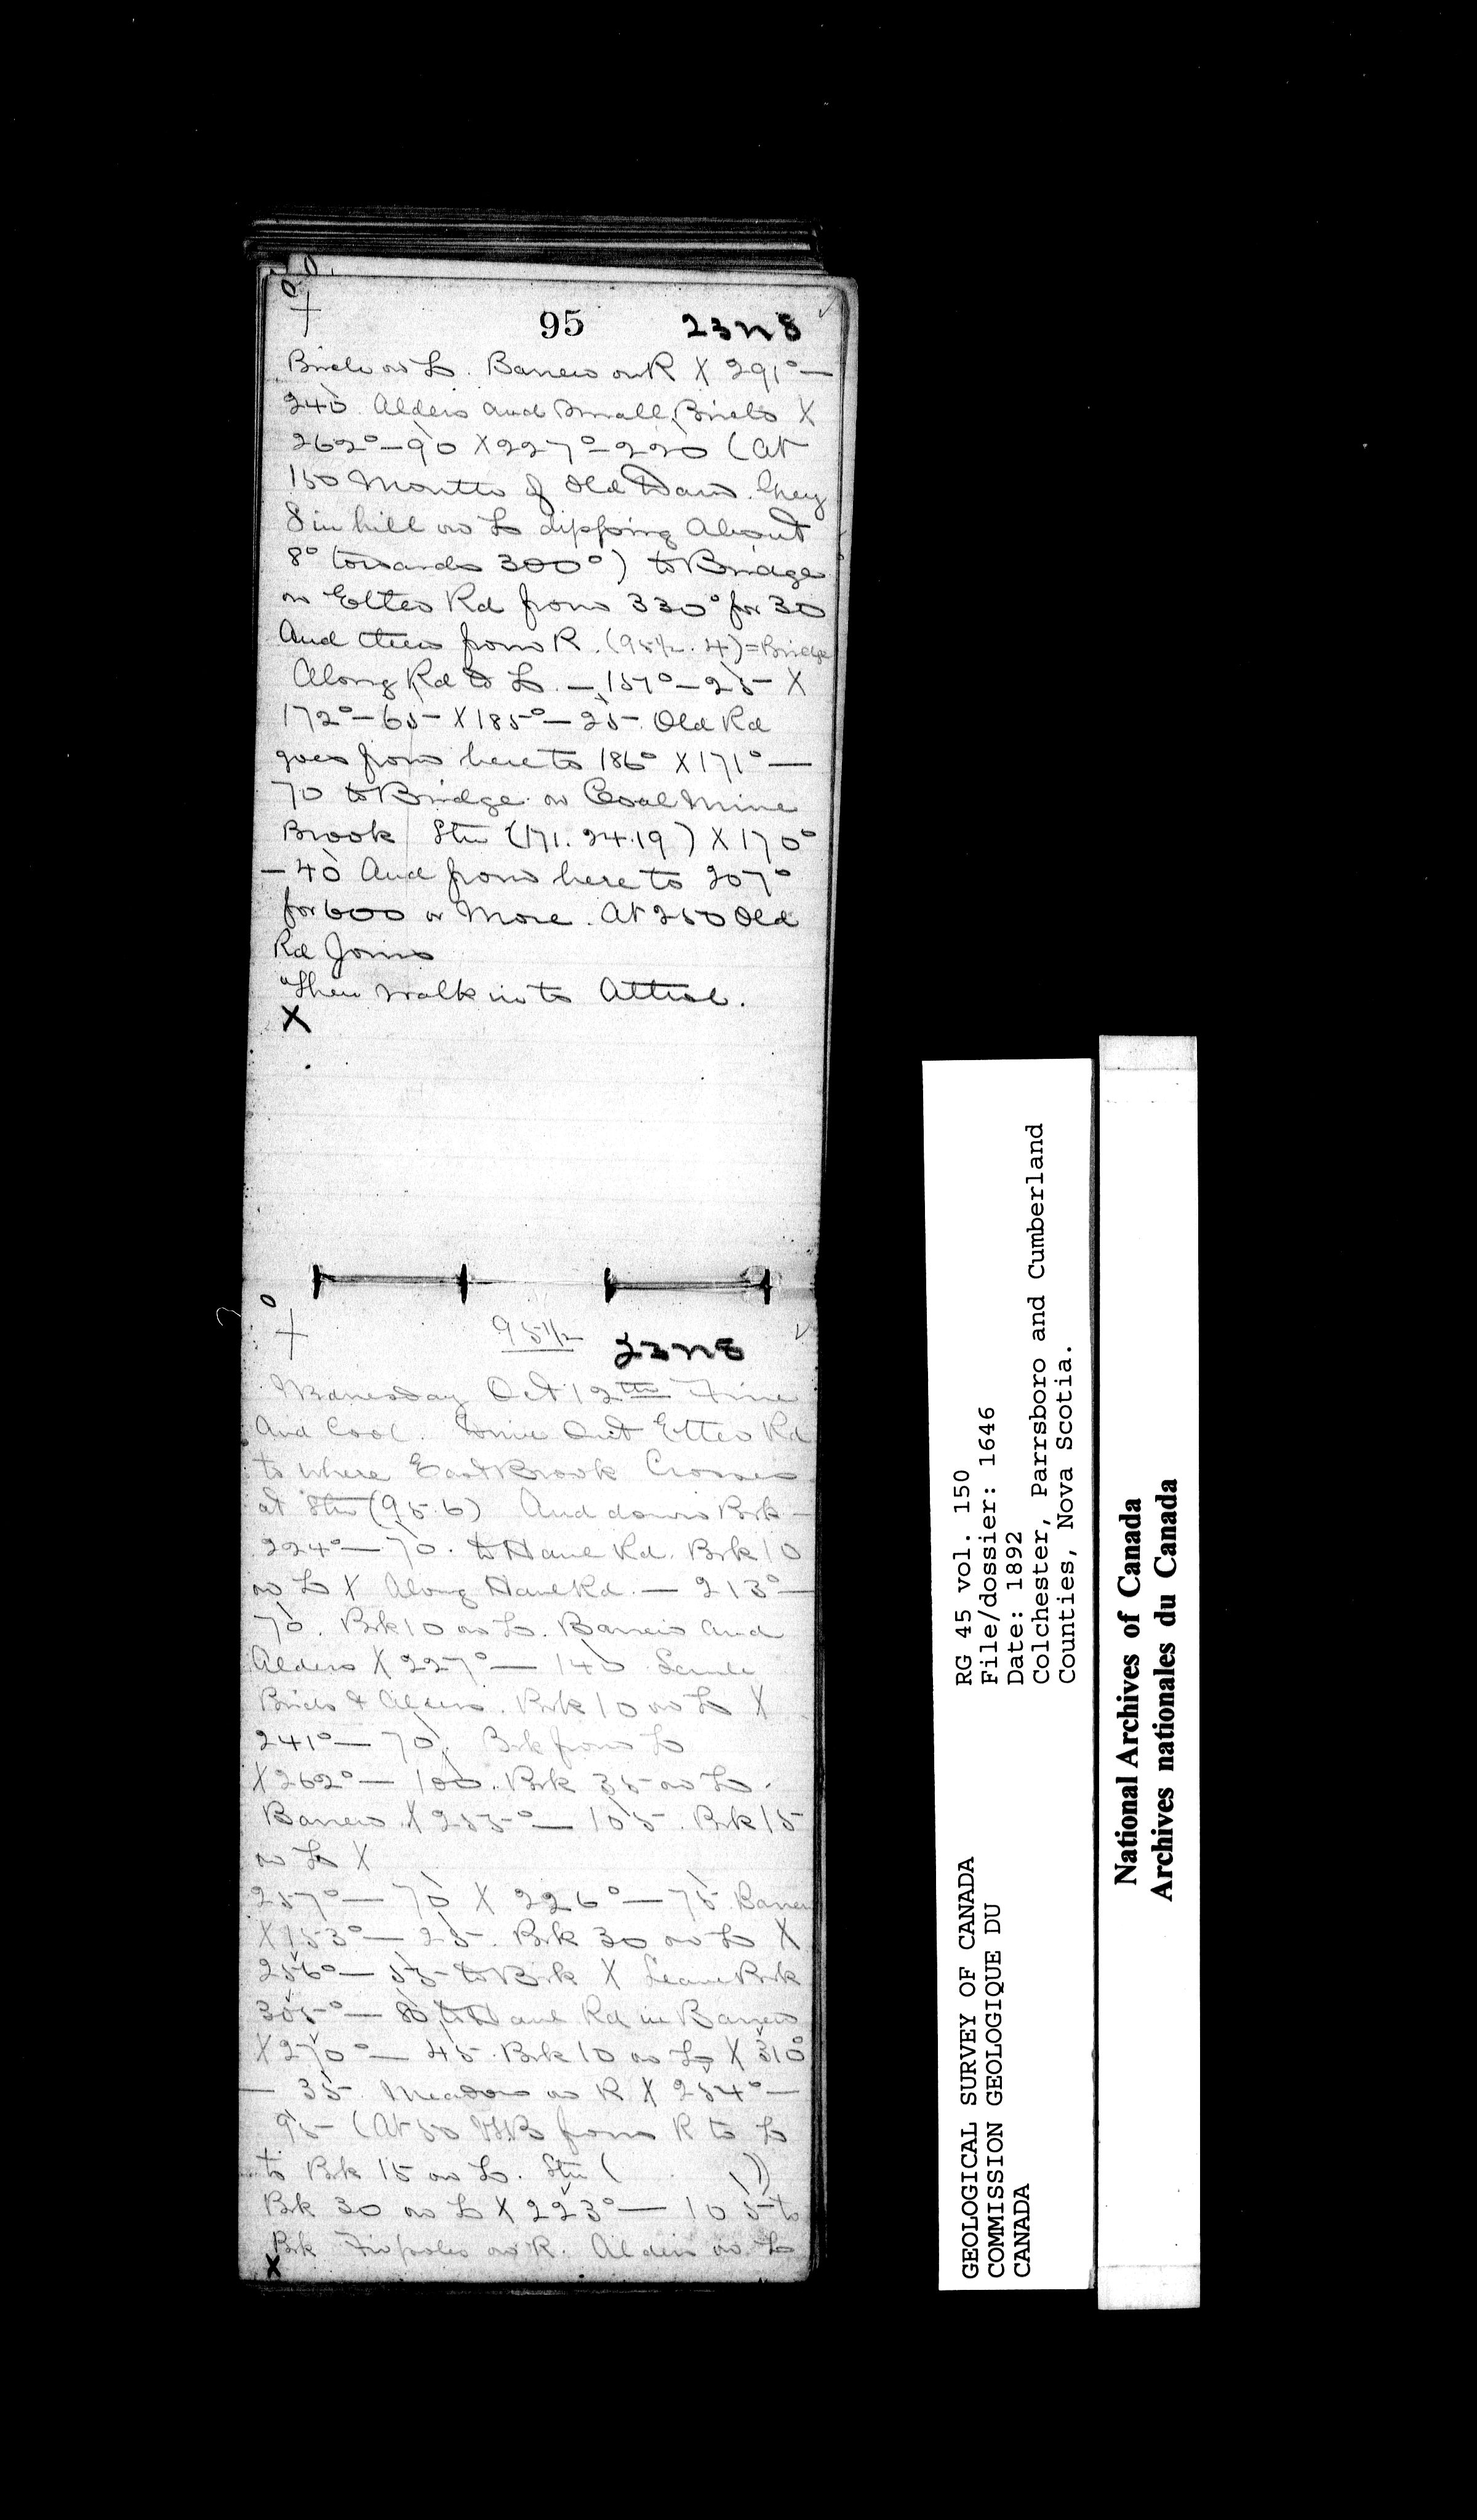 95 23N8
Birch on L. Barren on R X 291° —
240 Alders and Small Birch X
262° — 90 X 227° — 220 (At
150 Mouth of Old Dam. Grey
S in hill on L dipping About
8° towards 300°) to Bridge
on Etter Rd from 330° for 30
And then from R. (95½.4) = Bridge
Along Rd to L. — 157° — 25 X
172° — 65 X 185° — 25. Old Rd
goes from here to 186° X 171° —
70 to Bridge on Coal Mine
Brook Stn (171.24.19) X 170°
— 40 And from here to 207°
for 600 or More. At 250 Old
Rd Joins
Then walk in to
X
95½ 23N8
Wednesday Oct 12th Fine
And Cool. Drive Out Etter Rd
to where East Brook Crosses
at Stn (95.6) And down Brk —
224° — 70. to Haul Rd. Brk 10
on L X Along Haul Rd. — 213° —
70. Brk 10 on L. Barren and
Alders X 227° — 140
Birch & Alders. Brk 10 on L X
241° — 70. Brk from L
X 262° — 100. Brk 35 on L.
Barren X 255° — 105. Brk 15
on L X
257° — 70 X 226° — 75 Barren
X 153° — 25. Brk 30 on L X
256° — 55 to Brk X Leave Brk
305° — 80 to Haul Rd in Barren
X 270° — 45. Brk 10 on L X 310°
— 35. Meadow on R X 254° —
95 (At 50 from R to L
to Brk 15 on L. Stn ( . )
Brk 30 on L X 223° — 105 to
Brk Firpoles on R. Alders on L
X
GEOLOGICAL SURVEY OF CANADA
COMMISSION GEOLOGIQUE DU
CANADA
RG 45 vol. 150
File/dossier: 1646
Date: 1892
Colchester, Parrsboro and Cumberland
Counties, Nova Scotia.
National Archives of Canada
Archives nationales du Canada